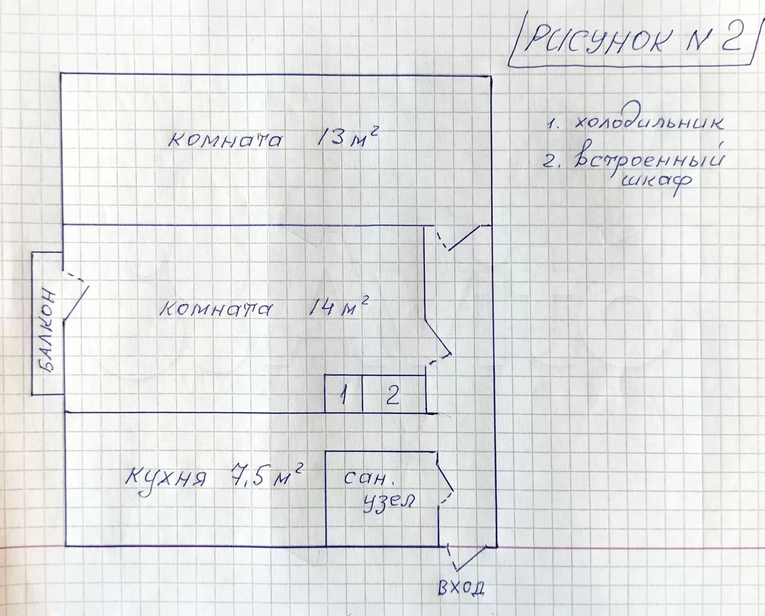 РИСУНОК N 2
1. холодильник
2. встроенный
шкаф
комната 13 м²
комната 14 м²
БАЛКОН
1 2
кухня 7,5 м²
сан.
узел
ВХОД